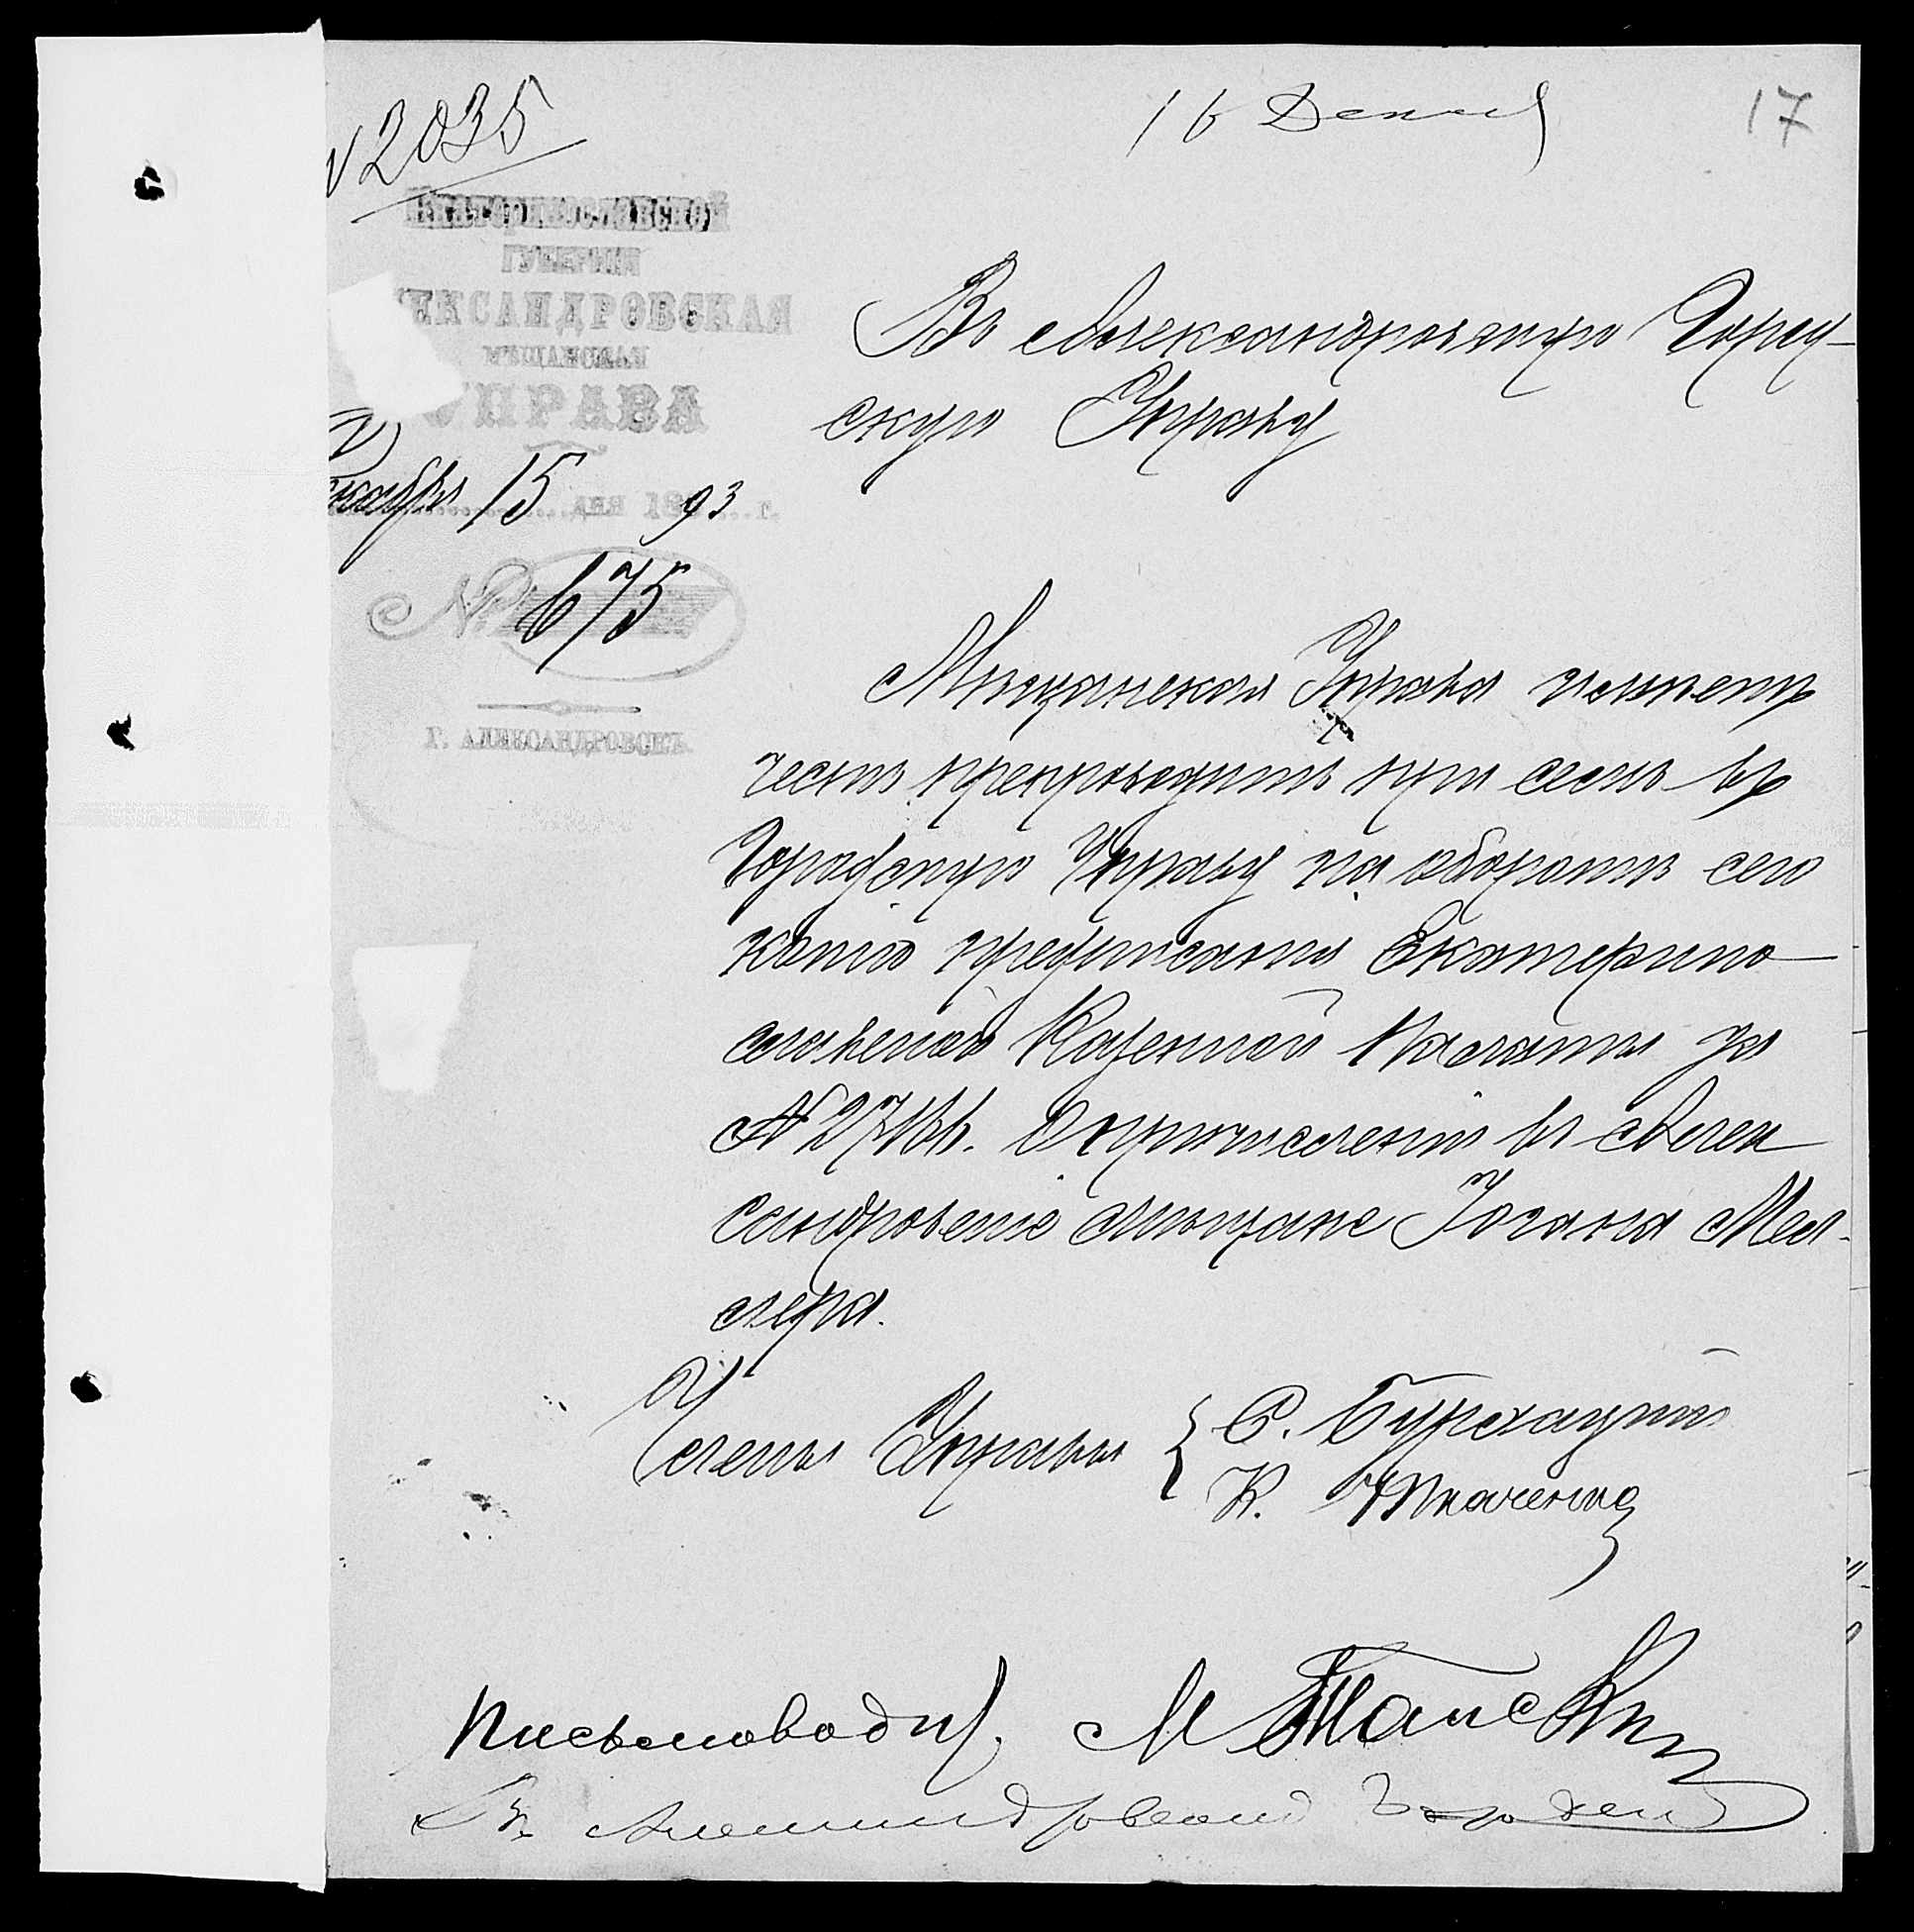 № 2035
16 Декаб
17
Екатеринославской
ГУБЕРНІИ
АЛЕКСАНДРОВСКАЯ
МѢЩАНСКАЯ
УПРАВА
Декабря 15 дня 1893 г.
№ 675
Г. АЛЕКСАНДРОВСКЪ.
Въ Александровскую Город-
скую Управу
Мѣщанская Управа имѣетъ
честь препроводить при семъ въ
Городскую Управу на оборотѣ сего
копію предписанія Екатерино-
славской Казенной Палаты за
№ 27166. О причисленіи въ Алек
сандровскіе мѣщане Іогана Мел-
лера.
Члены Управы
С.
К. Ткаченко
Письмовод. М
Въ Александровской